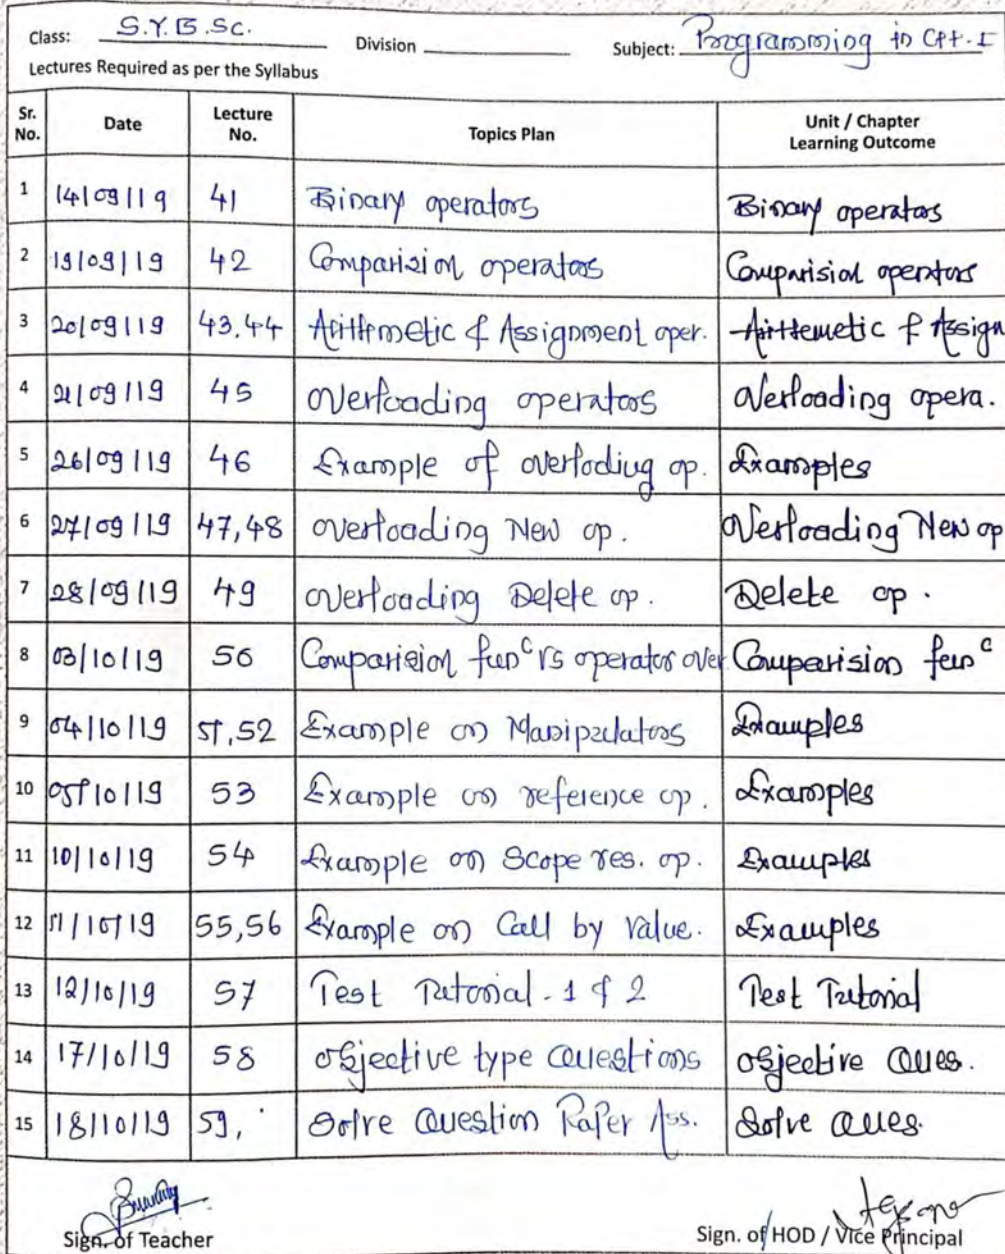 Class: S.Y.B.Sc. Division Subject: Programming in C++-I
Lectures Required as per the Syllabus
Sr. No. Date Lecture No. Topics Plan Unit / Chapter Learning Outcome
1 14/09/19 41 Binary operators Binary operators
2 19/09/19 42 Comparision operators Comparision operators
3 20/09/19 43.44 Arithmetic & Assignment oper. Arithemetic & Assign
4 21/09/19 45 Overloading operators Overloading opera.
5 26/09/19 46 Example of overloding op. Examples
6 27/09/19 47,48 overloading New op. Overloading New op
7 28/09/19 49 overloading Delete op. Delete op.
8 03/10/19 50 Comparision func vs operator over Comparision func
9 04/10/19 51,52 Example on Manipulators Examples
10 05/10/19 53 Example on reference op. Examples
11 10/10/19 54 Example on Scope res. op. Examples
12 11/10/19 55,56 Example on Call by value. Examples
13 12/10/19 57 Test Tutorial-1 & 2 Test Tutorial
14 17/10/19 58 objective type Questions objective Ques.
15 18/10/19 59, Solve Question Paper Ass. Solve Ques.
Sign. of Teacher Sign. of HOD / Vice Principal